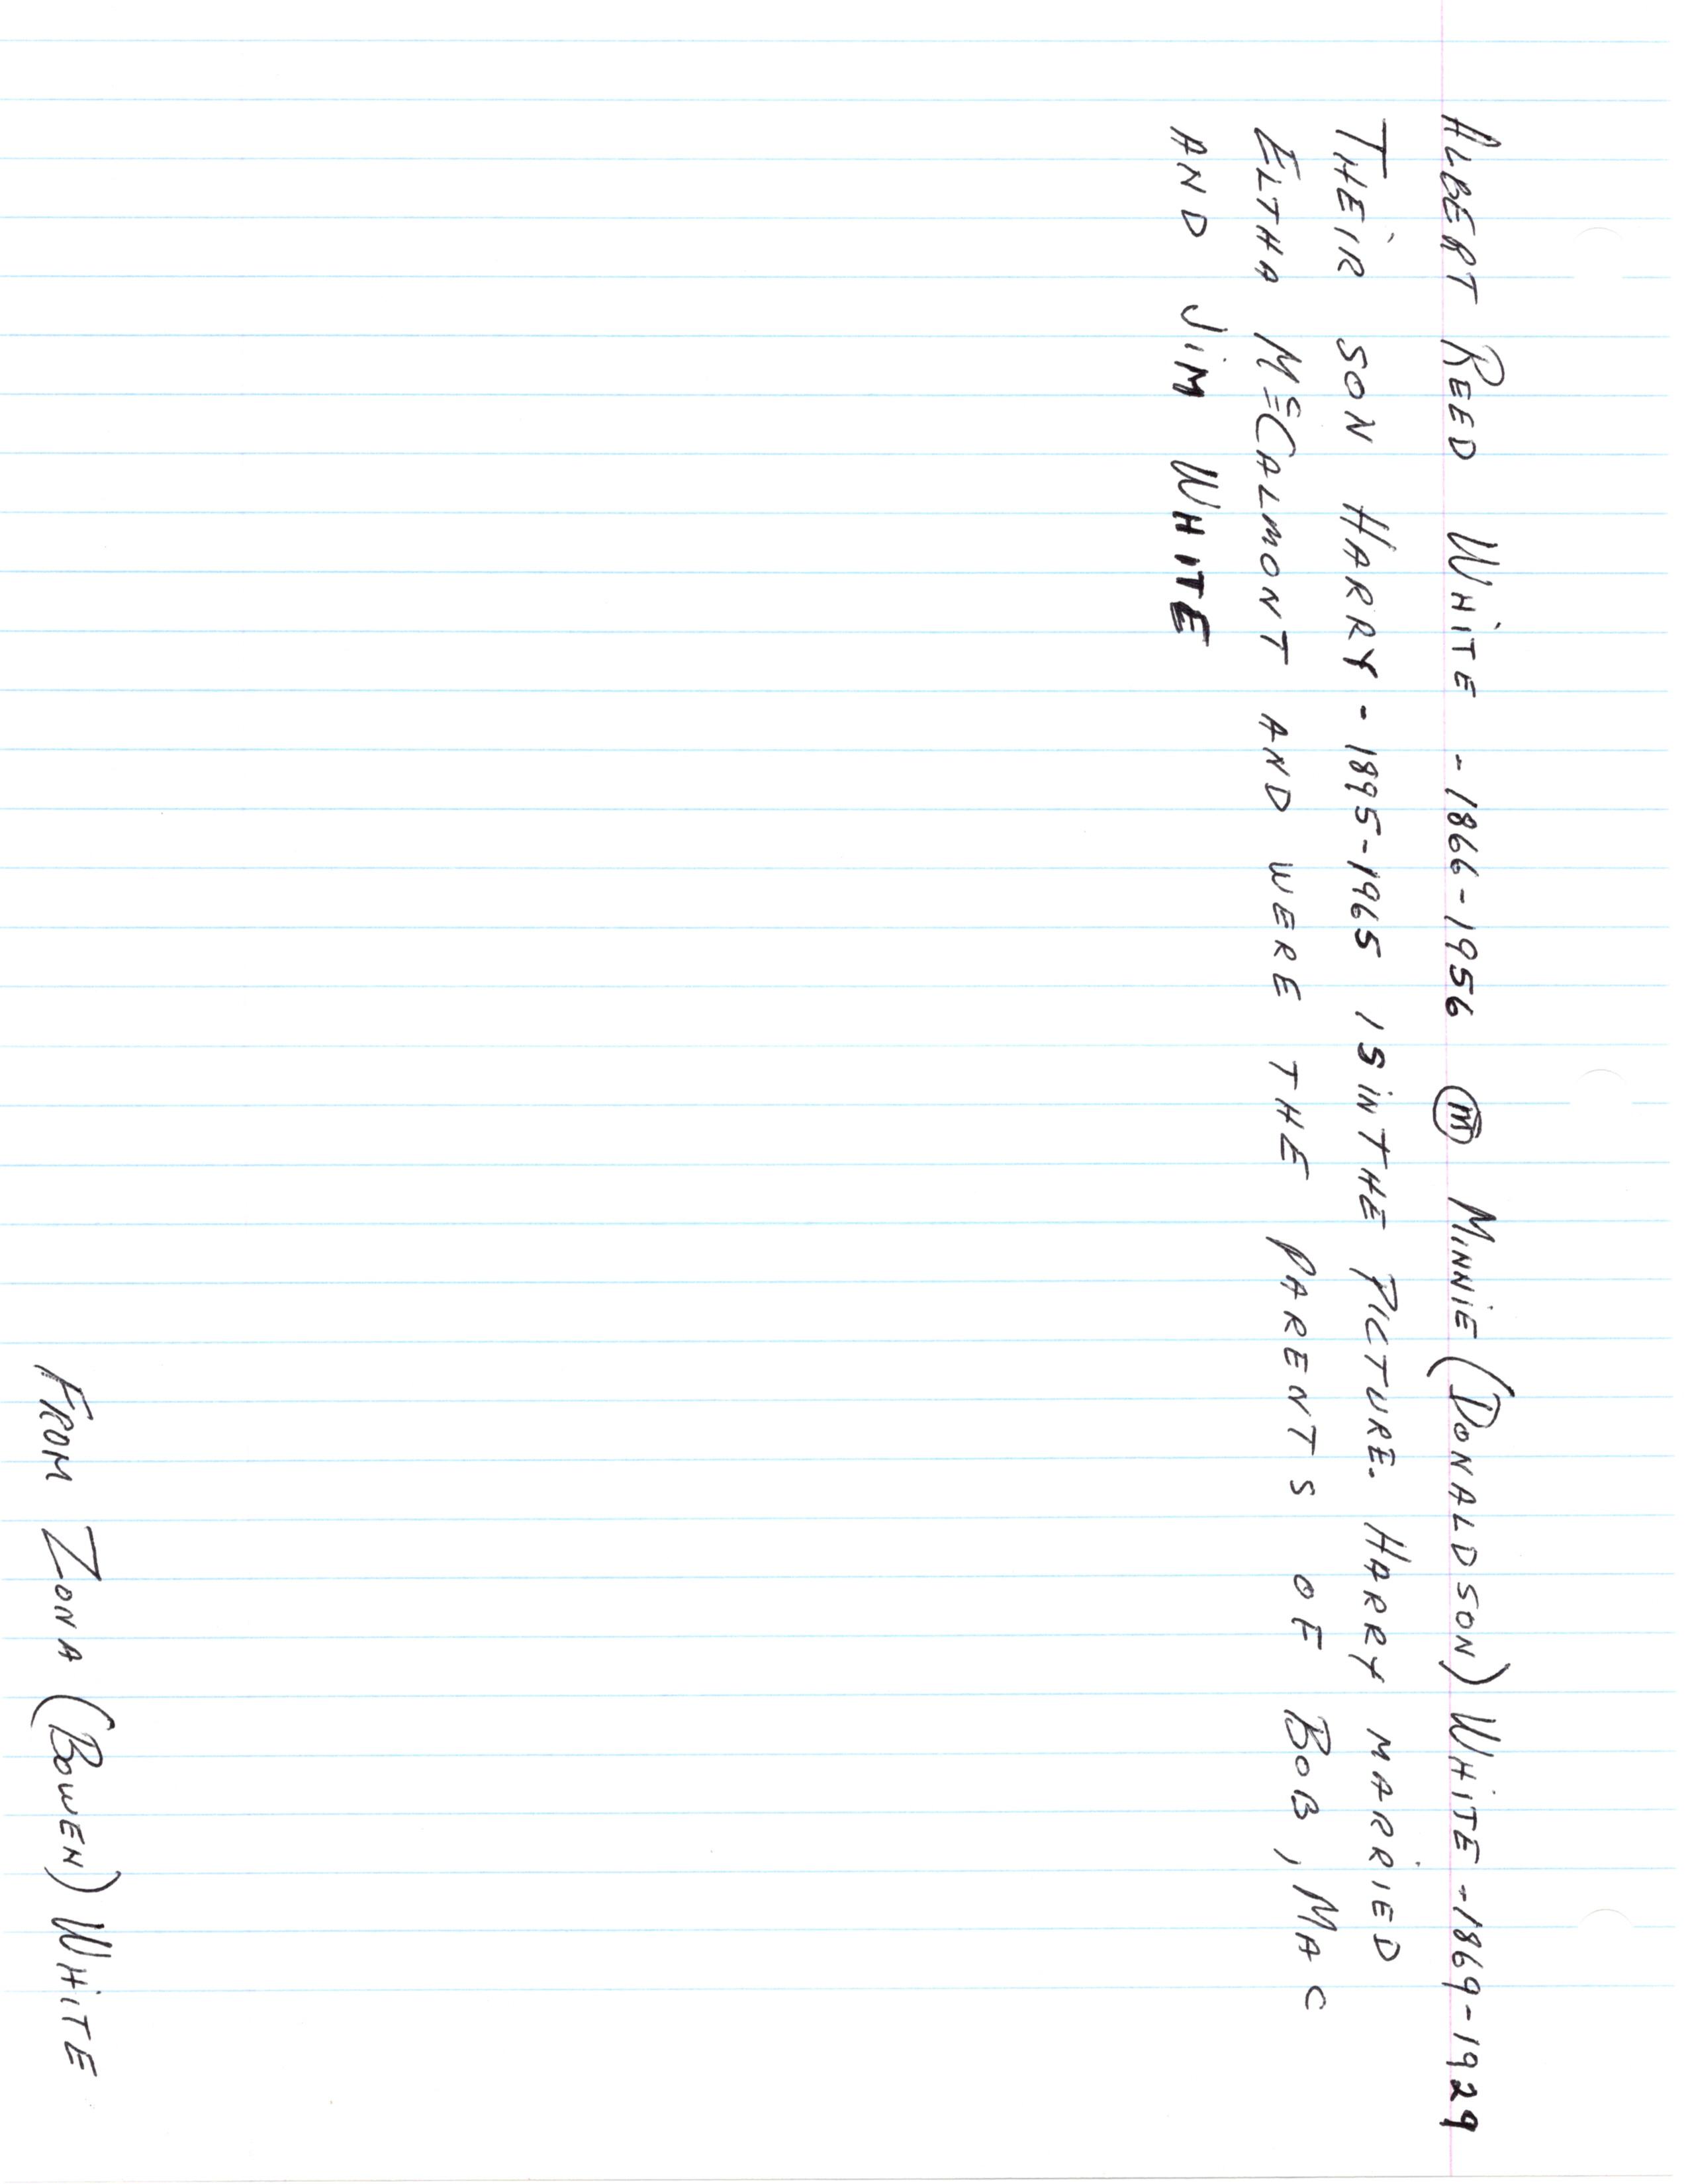 ALBERT REED WHITE - 1866-1956 ⓜ MINNIE (DONALDSON) WHITE - 1869-1929
THEIR SON HARRY - 1895-1965 IS IN THE PICTURE. HARRY MARRIED
ELTHA McCALMONT AND WERE THE PARENTS OF BOB, MAC
AND JIM WHITE
FROM ZONA (BOWEN) WHITE